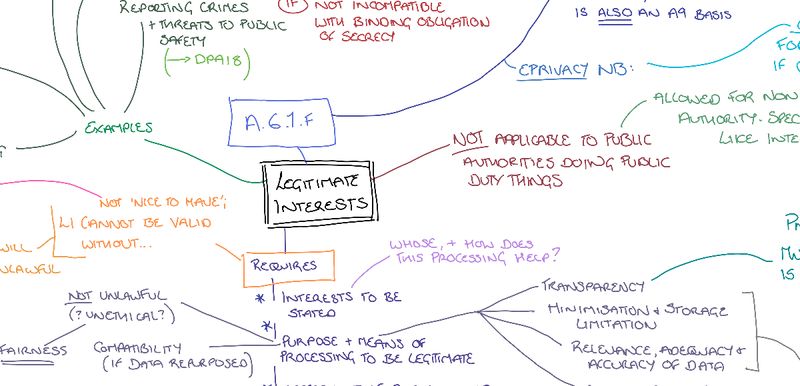 REPORTING CRIMES
+ THREATS TO PUBLIC
SAFETY
(→ DPA18)
IF
NOT INCOMPATIBLE
WITH BINDING OBLIGATION
OF SECRECY
IS ALSO AN A9 BASIS
EPRIVACY NB:
FO
IF
A.6.1.F
EXAMPLES
LEGITIMATE
INTERESTS
NOT APPLICABLE TO PUBLIC
AUTHORITIES DOING PUBLIC
DUTY THINGS
ALLOWED FOR NON
AUTHORITY-SPEC
LIKE INTE
NOT 'NICE TO HAVE';
LI CANNOT BE VALID
WITHOUT...
WILL
NLAWFUL
REQUIRES
WHOSE, + HOW DOES
THIS PROCESSING HELP?
* INTERESTS TO BE
STATED
* PURPOSE + MEANS OF
PROCESSING TO BE LEGITIMATE
NOT UNLAWFUL
(? UNETHICAL?)
FAIRNESS
COMPATIBILITY
(IF DATA REPURPOSED)
TRANSPARENCY
MINIMISATION & STORAGE
LIMITATION
RELEVANCE, ADEQUACY &
ACCURACY OF DATA
IS